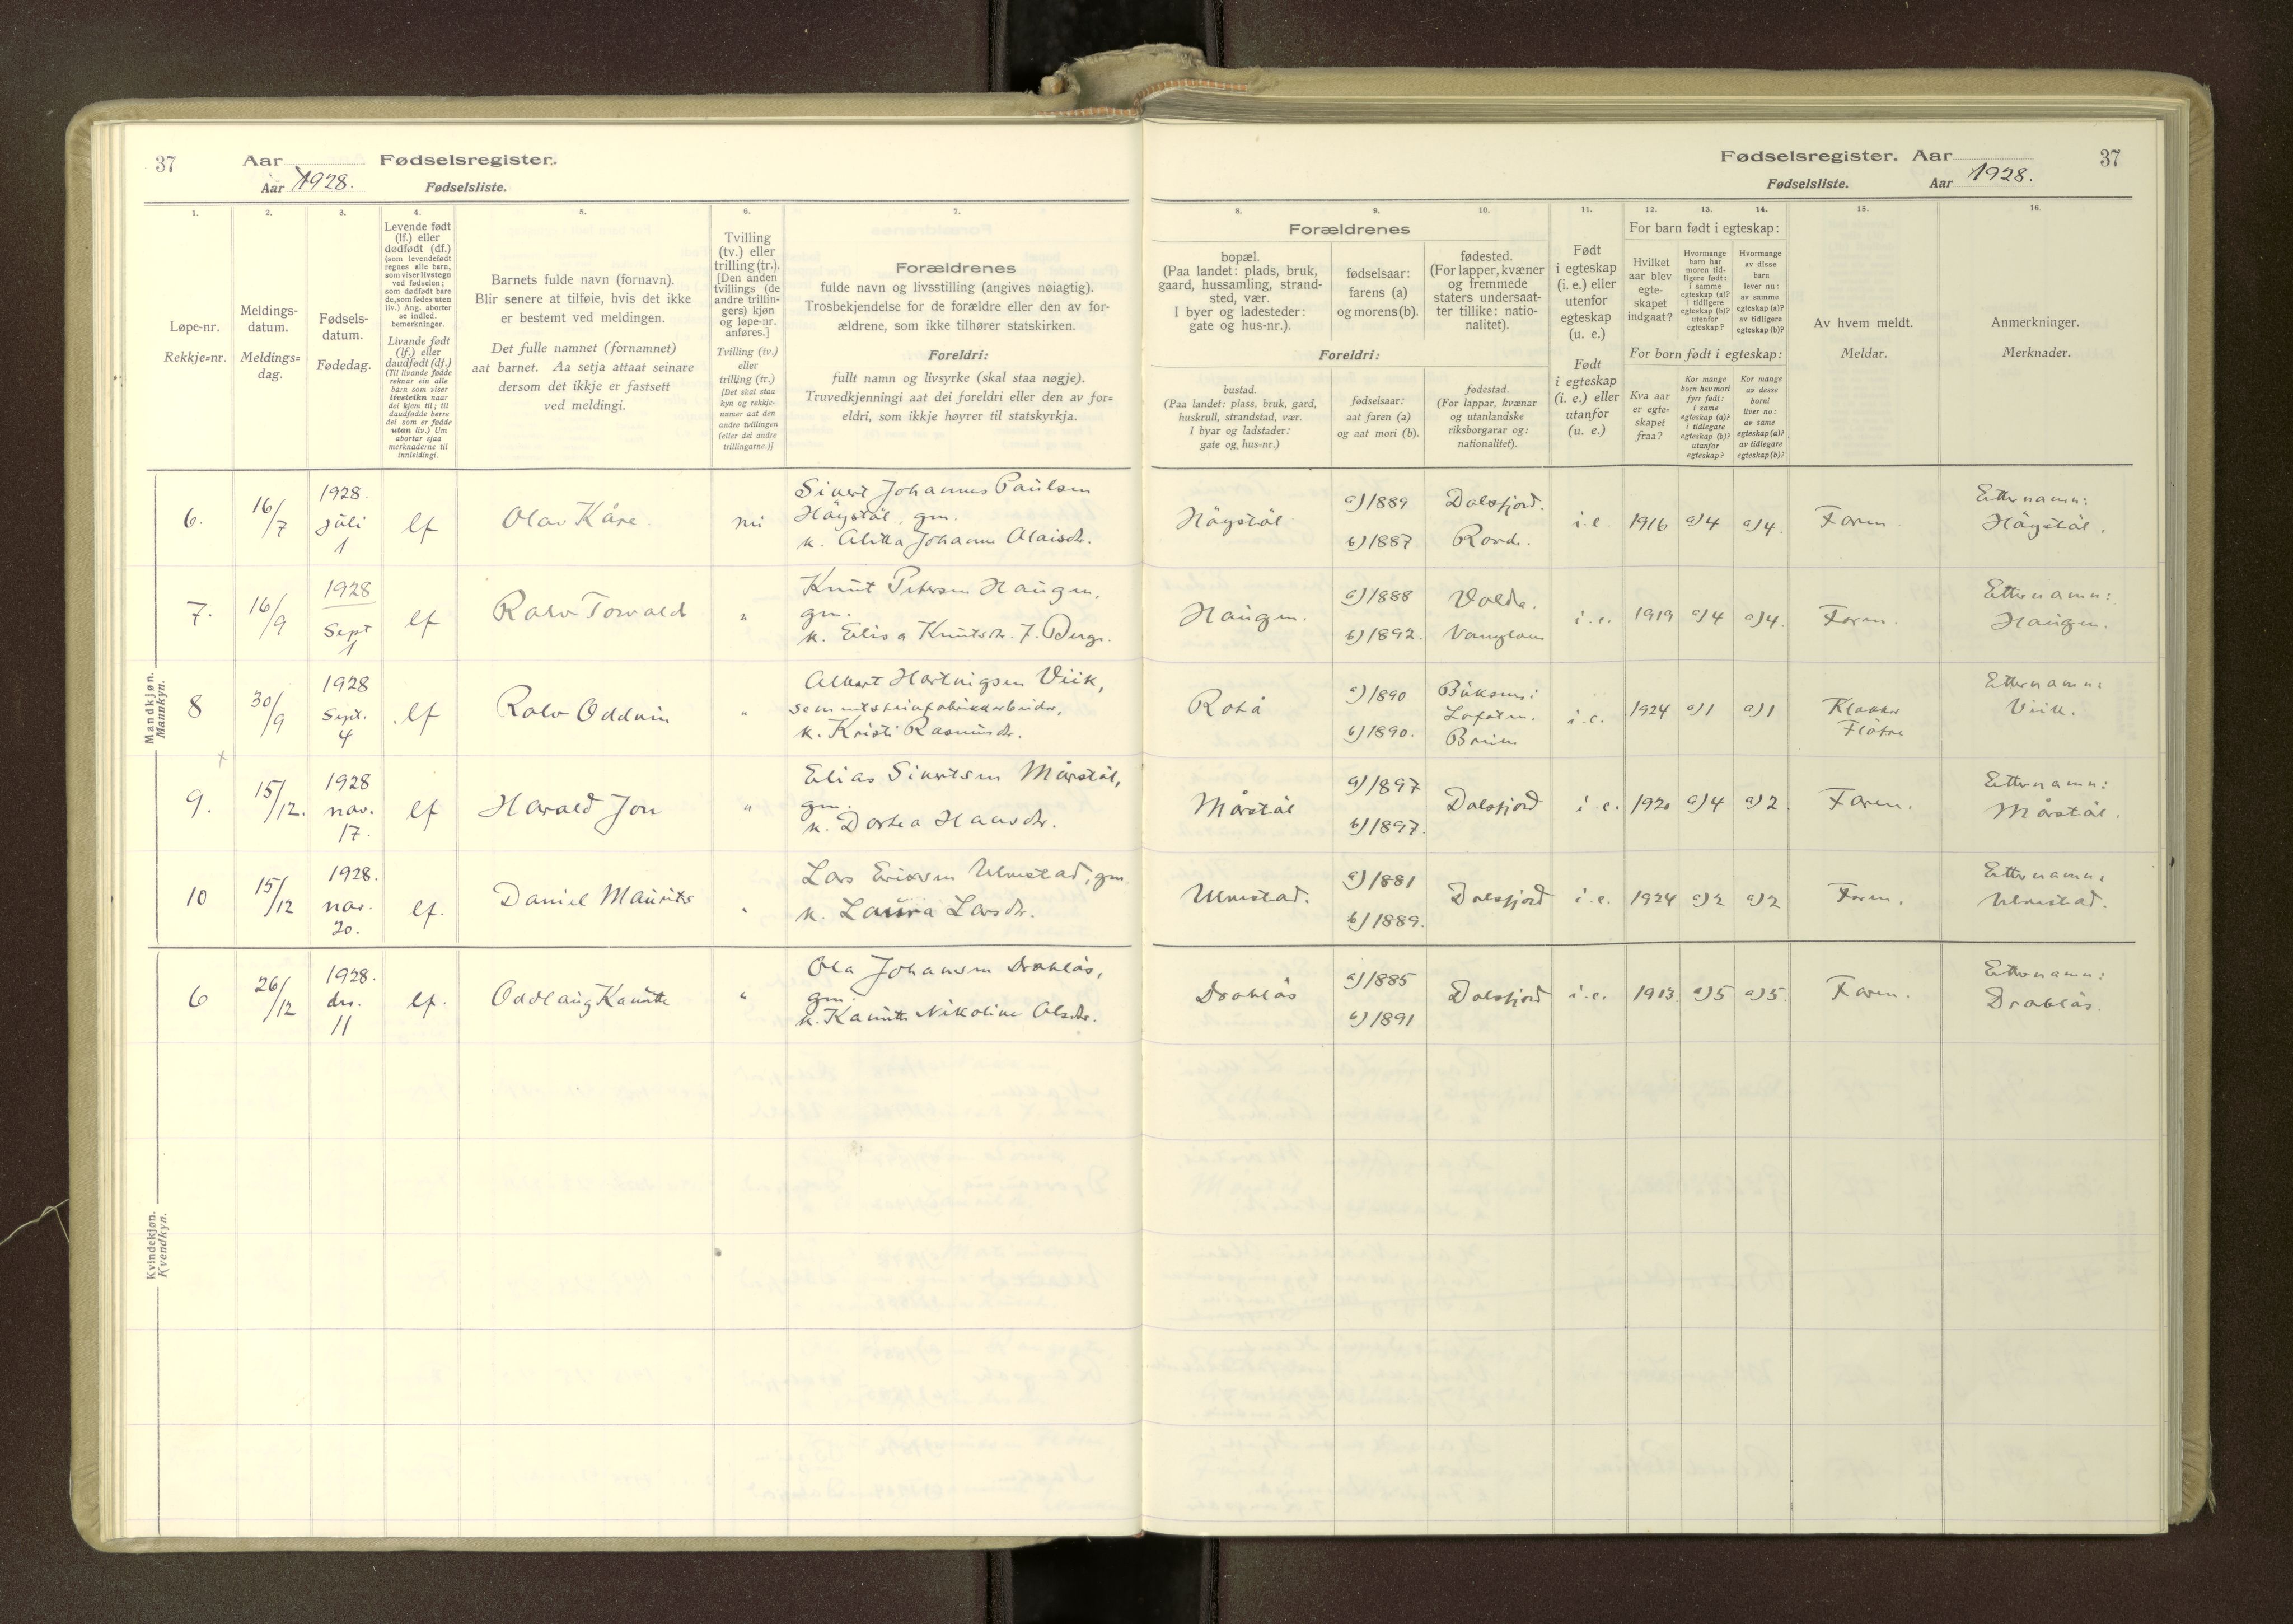 37 Aar Fødselsregister.
Aar 1928. Fødselsliste.
Fødselsregister. Aar 37
Fødselsliste. Aar 1928.
1. 2. 3. 4. 5. 6. 7.
Løpe-nr.
Rekkje=nr.
Meldings-
datum.
Meldings=
dag.
Fødsels-
datum.
Fødedag.
Levende født
(lf.) eller
dødfødt (df.)
(som levendefødt
regnes alle barn,
som viser livstegn
ved fødselen;
som dødfødt bare
de, som fødes uten
liv.) Ang. aborter
se indled.
bemerkninger.
Livande født
(lf.) eller
daudfødt (df.)
(Til livande fødde
reknar ein alle
barn som viser
livsteikn naar
dei kjem til; til
daudfødde berre
dei som er fødde
utan liv.) Um
abortar sjaa
merknaderne til
innleidingi.
Barnets fulde navn (fornavn).
Blir senere at tilføie, hvis det ikke
er bestemt ved meldingen.
Det fulle namnet (fornamnet)
aat barnet. Aa setja attaat seinare
dersom det ikkje er fastsett
ved meldingi.
Tvilling
(tv.) eller
trilling (tr.).
[Den anden
tvillings (de
andre trillin-
gers) kjøn
og løpe-nr.
anføres.]
Tvilling (tv.)
eller
trilling (tr.)
[Det skal staa
kyn og rekkje-
numer aat den
andre tvillingen
(eller dei andre
trillingarne.)]
Forældrenes
fulde navn og livsstilling (angives nøiagtig).
Trosbekjendelse for de forældre eller den av for-
ældrene, som ikke tilhører statskirken.
Foreldri:
fullt namn og livsyrke (skal staa nøgje).
Truvedkjenningi aat dei foreldri eller den av for=
eldri, som ikkje høyrer til statskyrkja.
8. 9. 10. 11. 12. 13. 14. 15. 16.
Forældrenes
bopæl.
(Paa landet: plads, bruk,
gaard, hussamling, strand-
sted, vær.
I byer og ladesteder:
gate og hus-nr.).
fødselsaar:
farens (a)
og morens (b).
fødested.
(For lapper, kvæner
og fremmede
staters undersaat-
ter tillike: natio-
nalitet).
Foreldri:
bustad.
(Paa landet: plass, bruk, gard,
huskrull, strandstad, vær.
I byar og ladstader:
gate og hus=nr.)
fødselsaar:
aat faren (a)
og aat mori (b).
fødestad.
(For lappar, kvænar
og utanlandske
riksborgarar og:
nationalitet).
Født
i egteskap
(i. e.) eller
utenfor
egteskap
(u. e.)
Født
i egteskap
(i. e.) eller
utanfor
(u. e.)
For barn født i egteskap:
Hvilket
aar blev
egte-
skapet
indgaat?
Hvormange
barn har
moren tid-
ligere født:
i samme
egteskap (a)?
i tidligere
egteskap (b)?
utenfor
egteskap?
Hvormange
av disse
barn
lever nu:
av samme
egteskap (a)?
av tidligere
egteskap (b)?
For born født i egteskap:
Kva aar
er egte=
skapet
fraa?
Kor mange
born hev mori
fyrr født:
i same
egteskap (a)?
i tidlegare
egteskap (b)?
utanfor
egteskap?
Kor mange
av desse
borni
liver no:
av same
egteskap (a)?
av tidlegare
egteskap (b)?
Av hvem meldt.
Meldar.
Anmerkninger.
Merknader.
Mandkjøn.
Mannkyn.
6. 16/7 1928. juli 1 lf Olav Kåre. nei
Sivert Johannes Paulsen
Höystöl, gm.
k. Johanne Olaisdr.
Höystöl a) 1889 b) 1887 Dalsfjord. i. e. 1916 a) 4 a) 4. Faren Etternamn:
Höystöl.
7. 16/9 1928 Sept 1 lf Ralv Torvald "
Knut Petersen Haugen,
gm.
k. Elisa Knutsdr. f. Berge.
Haugen. a) 1888 b) 1892. Volda. i. e. 1919 a) 4 a) 4. Faren. Etternamn:
Haugen.
8 30/9 1928 Sept. 4 lf Ralv Oddvin "
Albert Hartvigsen Viik,
sementsteinfabrikkarbeider,
k. Kristi Rasmusdr.
a) 1890 b) 1890. Lofoten. i. e. 1924 a) 1 a) 1 Klokker
Flötre
Etternamn:
Viik.
9. 15/12. 1928 nov. 17. lf Harald Jon "
Elias Sivertsen Mårstöl,
gm.
k. Dortea Hansdr.
Mårstöl a) 1897 b) 1897. Dalsfjord i. e. 1920 a) 4 a) 2. Faren. Etternamn:
Mårstöl.
10 15/12 1928. nov. 20. lf. Daniel Maurits "
Lars Eriksen Ulvestad, gm
k. Laura Larsdr.
Ulvestad. a) 1881 b) 1889. Dalsfjord i. e. 1924 a) 2 a) 2 Faren. Etternamn:
Ulvestad.
Kvindekjøn.
Kvendkyn.
6 26/12 1928. des. 11 lf. Oddlaug Kamitte "
Ola Johansen Drabløs,
gm.
k. Kamitte Nikoline Olsdr.
Drabløs a) 1885 b) 1891 Dalsfjord i. e. 1913. a) 5 a) 5. Faren. Etternamn:
Drabløs.